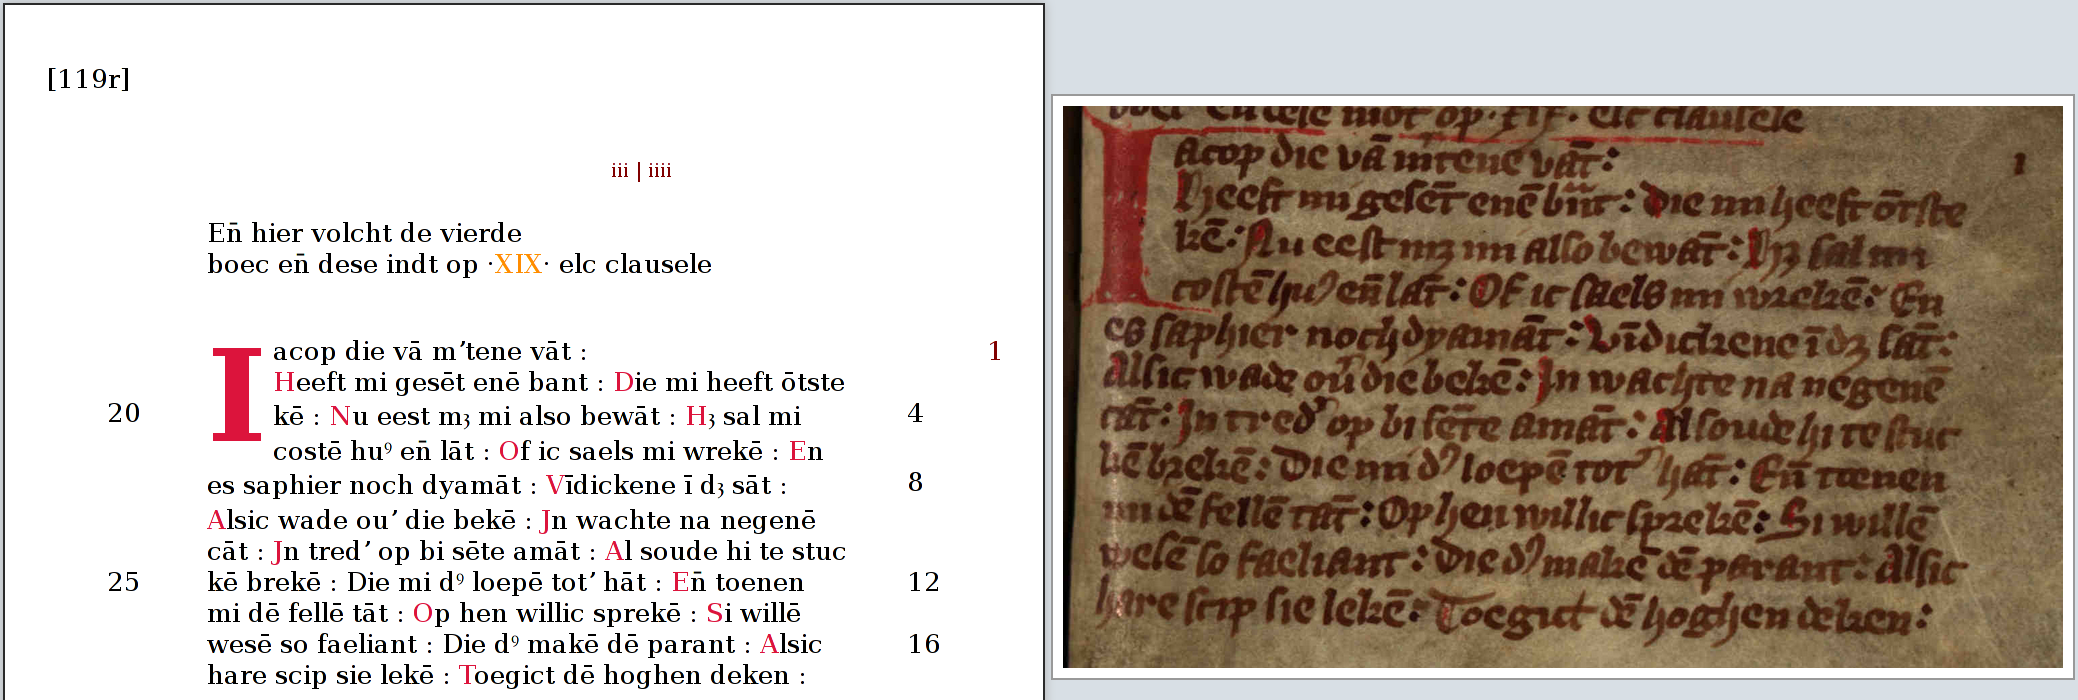 [119r]
iii | iiii
En̄ hier volcht de vierde
boec en̄ dese indt op ·XIX· elc clausele
Iacop die vā mʼtene vāt :
1
Heeft mi gesēt enē bant : Die mi heeft ōtste
20
kē : Nu eest mȝ mi also bewāt : Hȝ sal mi
4
costē huꝰ en̄ lāt : Of ic saels mi wrekē : En
es saphier noch dyamāt : Vīdickene ī dȝ sāt :
8
Alsic wade ouʼ die bekē : Jn wachte na negenē
cāt : Jn tredʼ op bi sēte amāt : Al soude hi te stuc
25
kē brekē : Die mi dꝰ loepē totʼ hāt : En̄ toenen
12
mi dē fellē tāt : Op hen willic sprekē : Si willē
wesē so faeliant : Die dꝰ makē dē parant : Alsic
16
hare scip sie lekē : Toegict dē hoghen deken :
boec en̄ dese indt op ·XIX· elc clausele
Iacop die vā mʼtene vāt :
1
Heeft mi gesēt enē bant : Die mi heeft ōtste
kē : Nu eest mȝ mi also bewāt : Hȝ sal mi
costē huꝰ en̄ lāt : Of ic saels mi wrekē : En
es saphier noch dyamāt : Vīdickene ī dȝ sāt :
Alsic wade ouʼ die bekē : Jn wachte na negenē
cāt : Jn tredʼ op bi sēte amāt : Al soude hi te stuc
kē brekē : Die mi dꝰ loepē totʼ hāt : En̄ toenen
mi dē fellē tāt : Op hen willic sprekē : Si willē
wesē so faeliant : Die dꝰ makē dē parant : Alsic
hare scip sie lekē : Toegict dē hoghen deken :